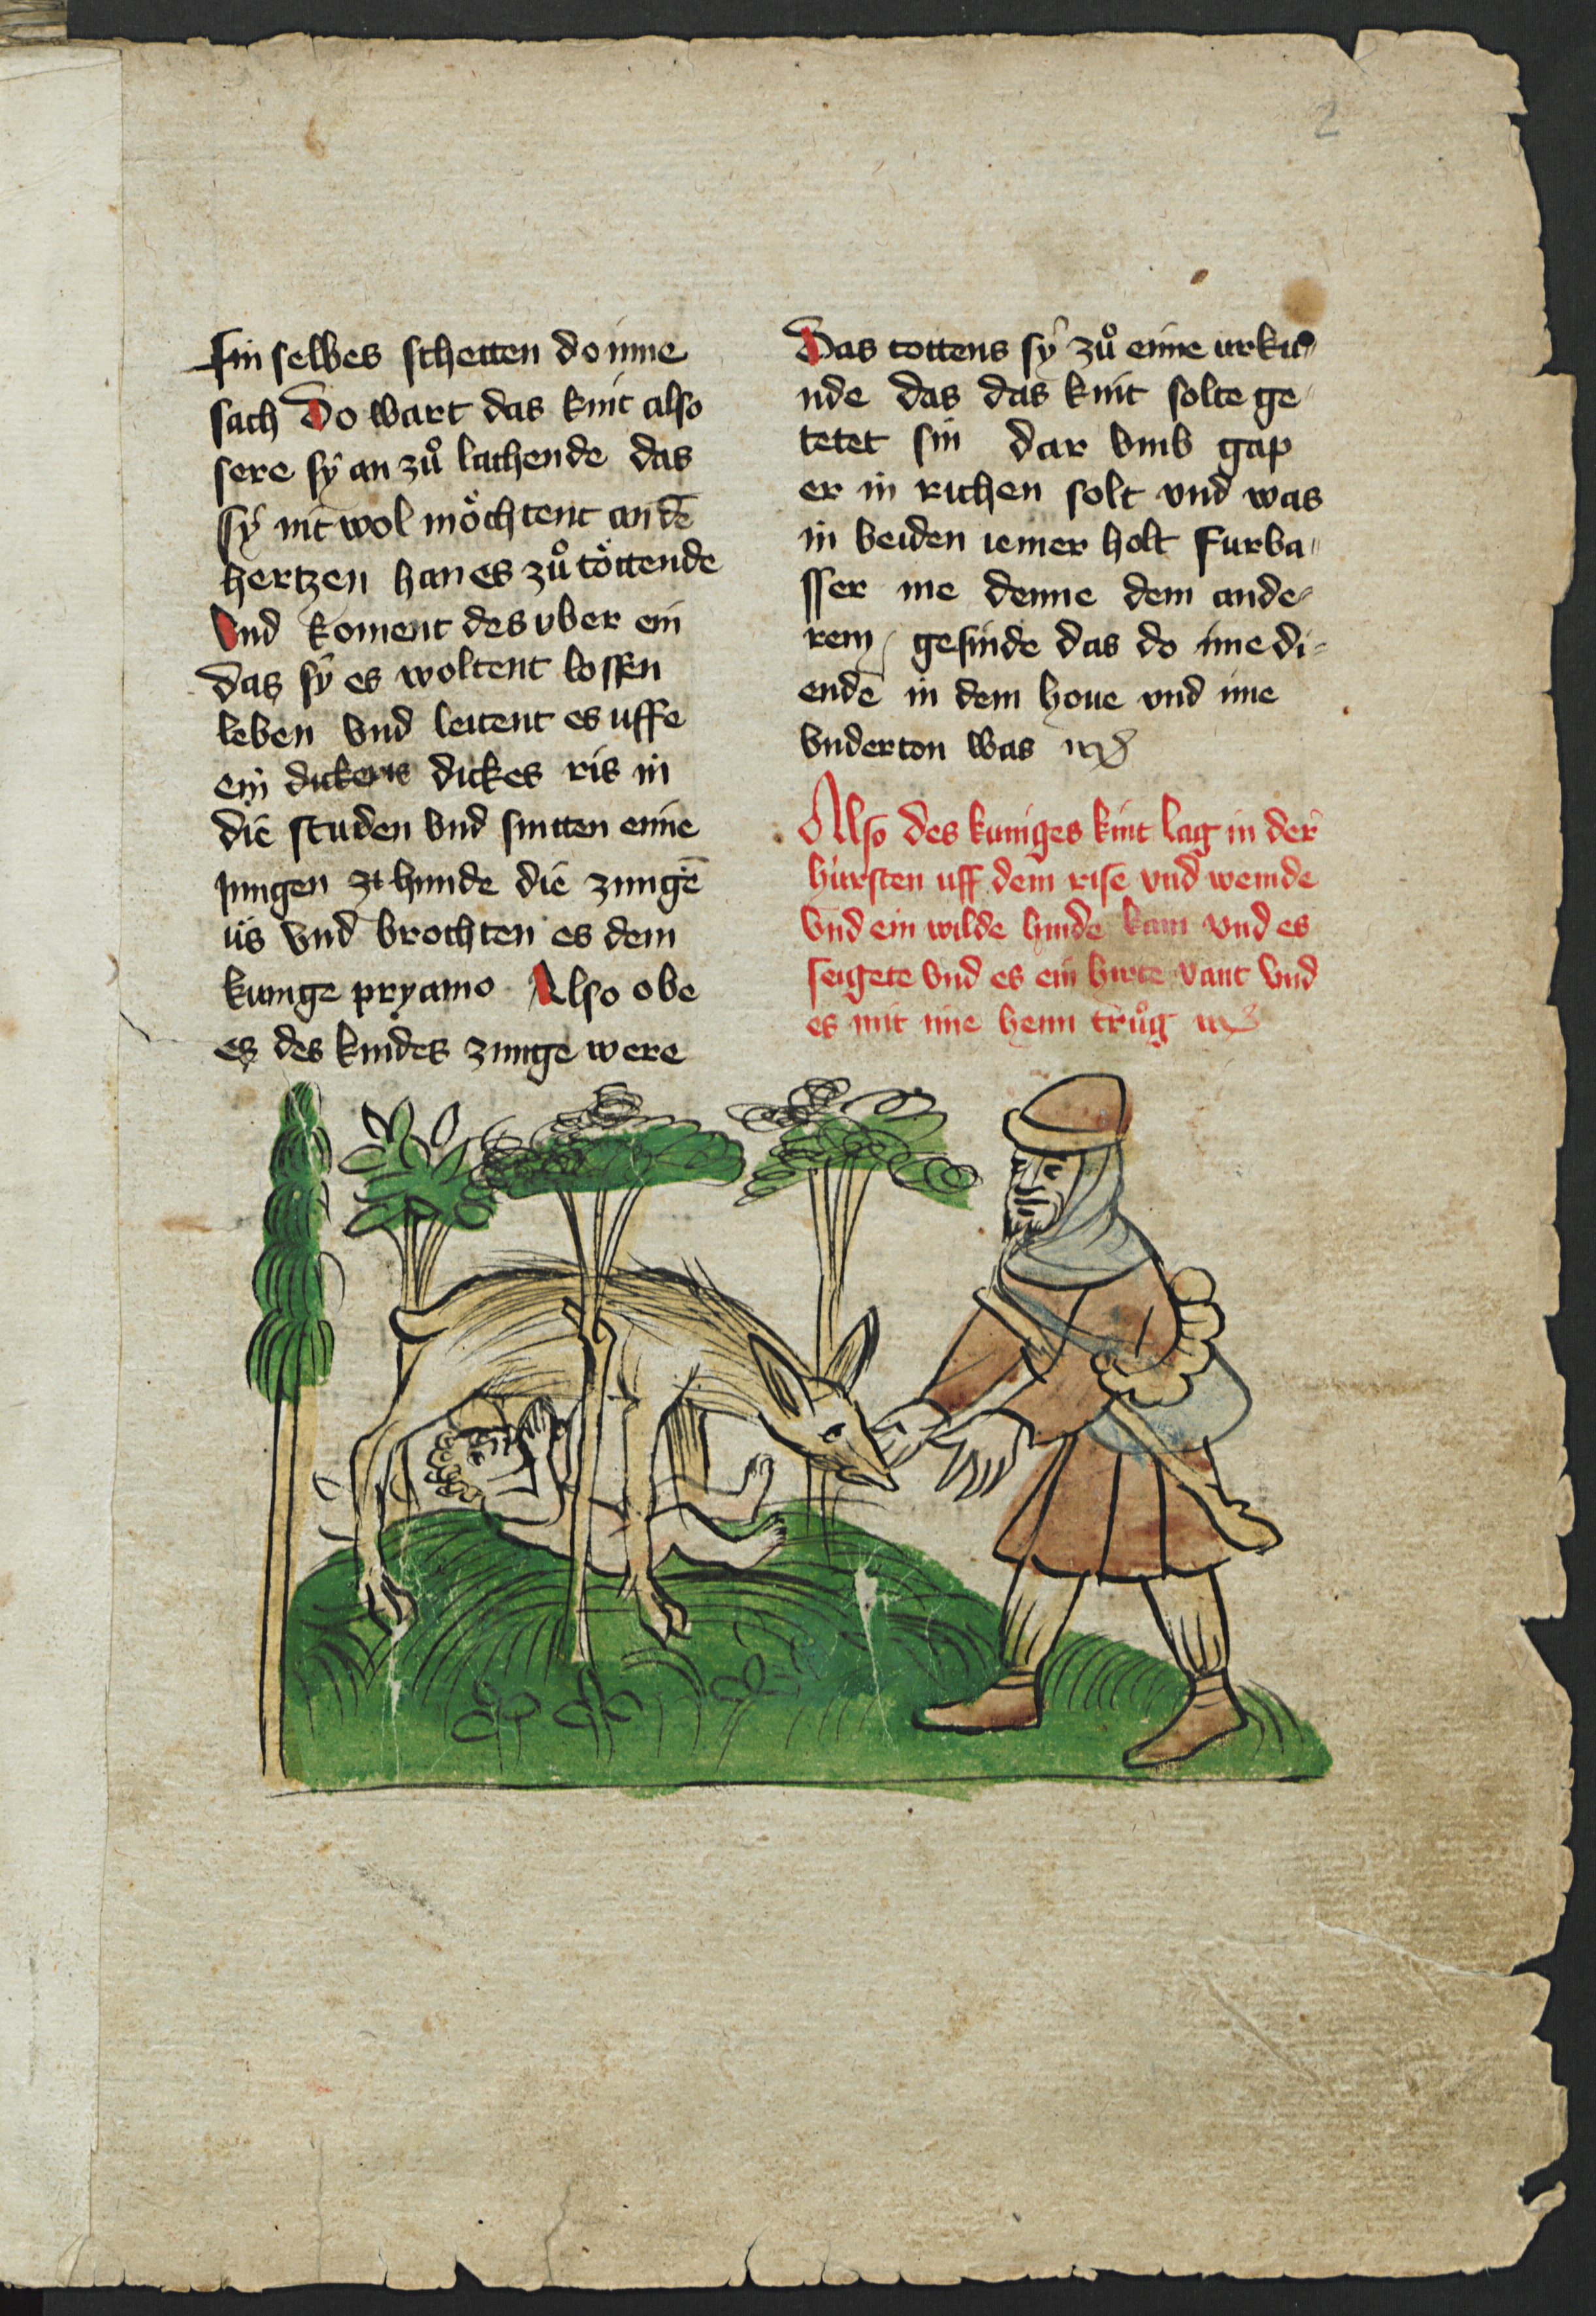 2
sin selbes schetten do inne
sach Do wart das kint also
sere sÿ an zů lachende das
sÿ nit wol möchtent an dē
hertzen han es zů töttende
Vnd koment des vber ein
das sÿ es woltent lossen
leben vnd leitent es uffe
ein dickers dickes ris in
die studen vnd snitten eime
jungen hunde die zungē
us vnd brochten es dem
kunige pryamo Also obe
es des kindes zunge were
Das tottens sÿ zů eime urku„
nde das das kint solte ge„
tetet sin dar vmb gap
er in richen solt vnd was
in beiden iemer holt furba„
sser me denne dem ande„
rem gesinde das do ime di„
endē in dem houe vnd ime
vnderton was
Also des kuniges kint lag in der
hursten uff dem rise vnd weinde
vnd ein wilde hinde kam vnd es
seigete vnd es ein hirte vant vnd
es mit ime heim trůg